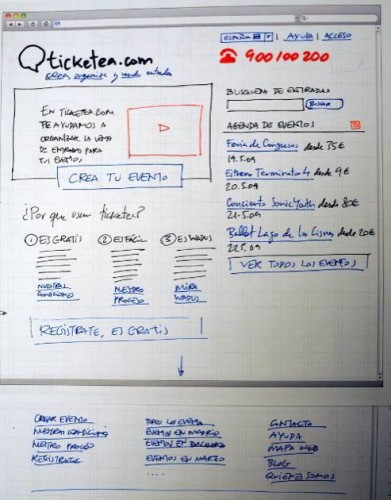 ESPAÑA | AYUDA | ACCESO
ticketea.com
crea, organiza y vende entradas
900 100 200
EN TICKETEA.COM
TE AYUDAMOS A
ORGANIZAR LA VENTA
DE ENTRADAS PARA
TU EVENTO
CREA TU EVENTO
BUSQUEDA DE ENTRADAS
BUSCAR
AGENDA DE EVENTOS
Feria de Congresos desde 75€
19.5.09
Estreno Terminator 4 desde 9€
20.5.09
Concierto Sonic Youth desde 80€
21.5.09
Ballet Lago de los Cisnes desde 20€
22.5.09
VER TODOS LOS EVENTOS
¿Por que usar ticketea?
1 ES GRATIS
2 ES FÁCIL
3 ES WADUS
NUESTRO
PROCESO
MIRA
WADUS
REGISTRATE, ES GRATIS
CREAR EVENTO
NUESTRO PROCESO
REGISTRATE
EVENTOS EN MARZO
....
CONTACTO
AYUDA
MAPA WEB
BLOG
QUIENES SOMOS